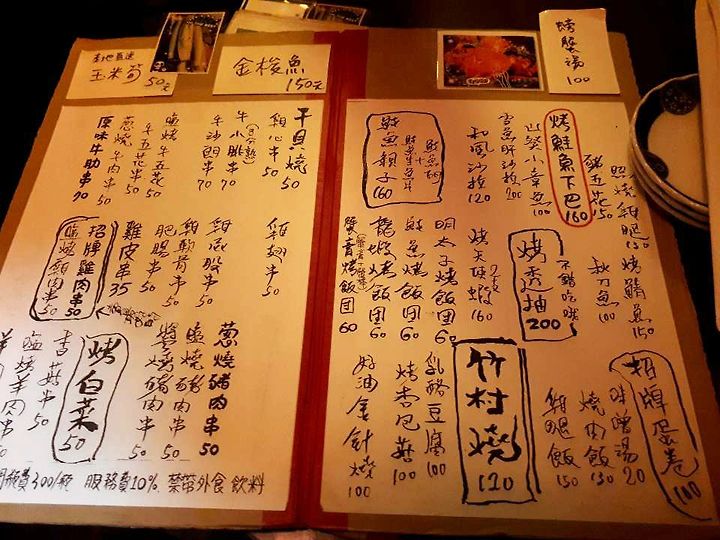 產地直送
玉米筍 50元
金梭魚 150元
烤蟹湯 100
干貝燒 50
雞心串 50
牛小排串 70
牛沙朗串 70
鹽燒牛五花 50
牛五花串 50
蔥燒牛肉串 50
原味牛肋串 70
雞翅串 50
雞屁股串 50
雞軟骨串 50
肥腸串 50
雞皮串 35
招牌雞肉串 50
鹽燒頸肉串 50
蔥燒豬肉串 50
鹽燒豬肉串 50
醬燒豬肉串 50
烤白菜 50
香菇串 50
鹽燒羊肉串 50
開瓶費300/瓶 服務費10% 禁帶外食飲料
照燒雞腿 130
豬五花 150
烤鮭魚下巴 160
芥末小章魚 100
和風沙拉 120
鮭魚卵+鮭魚生魚片
鮭魚親子 160
烤鯖魚 150
秋刀魚 100
不錯吃哦
烤透抽 200
烤天使蝦 2支 160
明太子烤飯團 60
鮭魚烤飯團 60
龍蝦烤飯團 60
蟹膏烤飯团 60
招牌蛋卷 100
味噌湯 20
燒肉飯 130
雞腿飯 130
竹村燒 120
乳酪豆腐 100
烤杏包菇 100
奶油金針燒 100